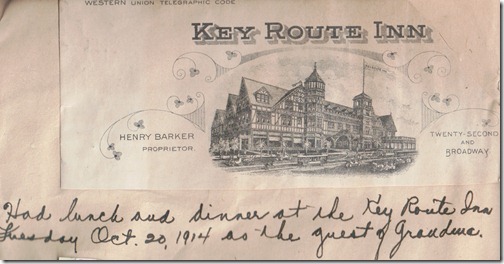 WESTERN UNION TELEGRAPHIC CODE
KEY ROUTE INN
HENRY BARKER
PROPRIETOR.
TWENTY-SECOND
AND
BROADWAY
Had lunch and dinner at the Key Route Inn
Tuesday Oct. 20, 1914 as the guest of Grandma.